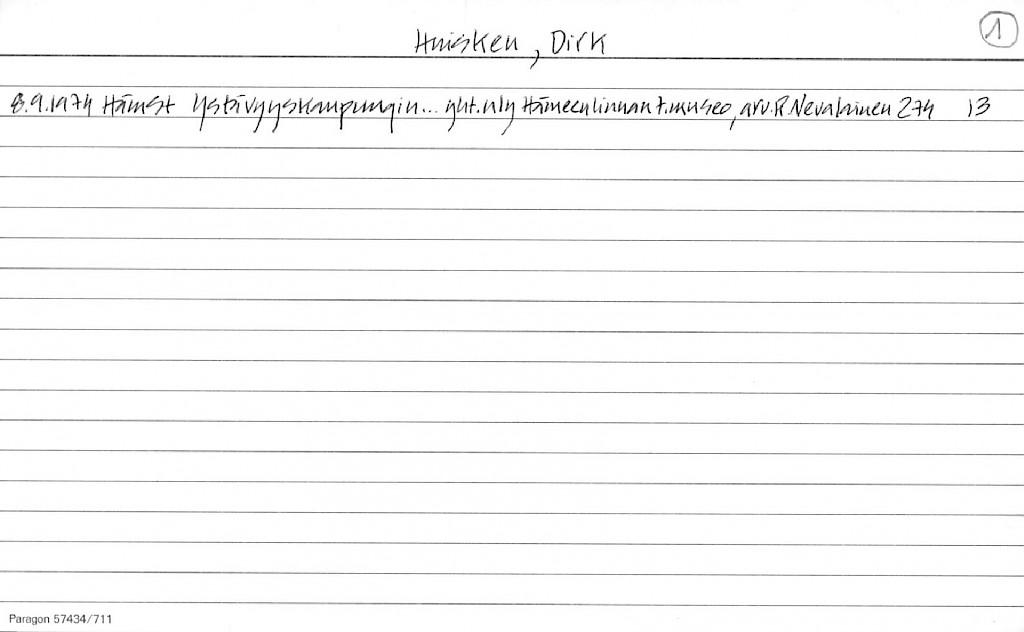 1
Huisken, Dirk
8.9.1974 HämSt Ystävyyskaupungin... yht.nly Hämeenlinnan t.museo, arv.R.Nevalainen 274 13
Paragon 57434/711